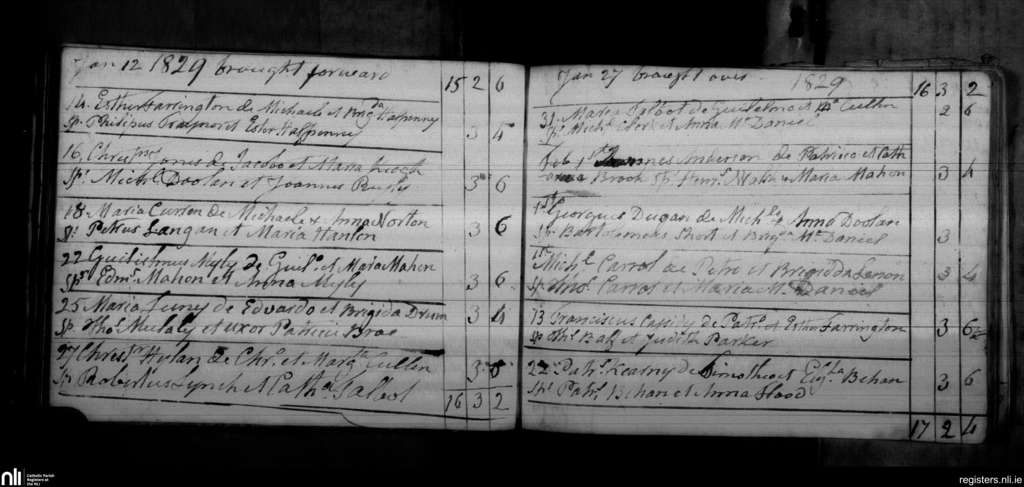 Jan 12 1829 brought forward 15 2 6
14. Esther Farrington de Michaele et Brigda Halpenny
Sp. Philipus Traynor et Ester Halpenny 3 4
16. Christr Jones de Jacobo et Maria
Sps Michl Doolan et Joannes 3 6
18. Maria Curten de Michaele & Anna Norton
Sp. Petrus Langan et Maria Hanlon 3 6
22 Guilielmus Nyly de Guilo et Maria Mahon
Sps Edmd Mahon et Anna Nyly 3 6
25 Maria Luny de Edvardo et Brigida Drum 3 4
Sp. Thos Mulaly et uxor Patricii
27 Christr Hylan de Chr. et Margta Cullen
Sps Robertus Lynch et Catha Talbot 3
16 3 2
Jan 27 brought over 1829 16 3 2
31 Maria Talbot de Guilelmo et Ma Cullin 2 6
Sps Michl et Anna McDaniel
Feb 1st Joannes Anderson de Patricio et Cath
Brook Sp. & Maria Mahon 3 4
1st Georgius Dugan de Michle & Anna Doolan
Sps Bartolomeus Short et Brigda McDaniel 3
Michl Carrol de Petro et Brigidda Lenon 3 4
Sp Thos Carrol et Maria Mc Daniel
13 Franciscus Cassidy de Patr. et Esther Farrington
Sp Thos et Juditha Parker 3 6
22. Patr. Kearny de Timotheo et Behan
Sps Patr. Behan et Anna Flood 3 6
17 2 4
nli
Catholic Parish
Registers at
the NLI
registers.nli.ie